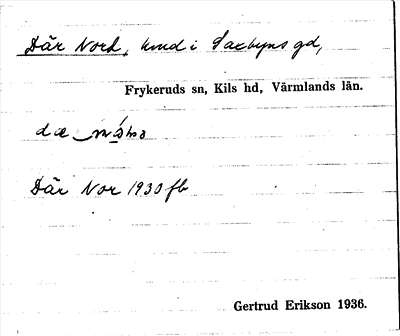 Där Nord, hmd i Saxbyns gd,
Frykeruds sn, Kils hd, Värmlands län.
dæ
Där Nor 1930 fb
Gertrud Erikson 1936.